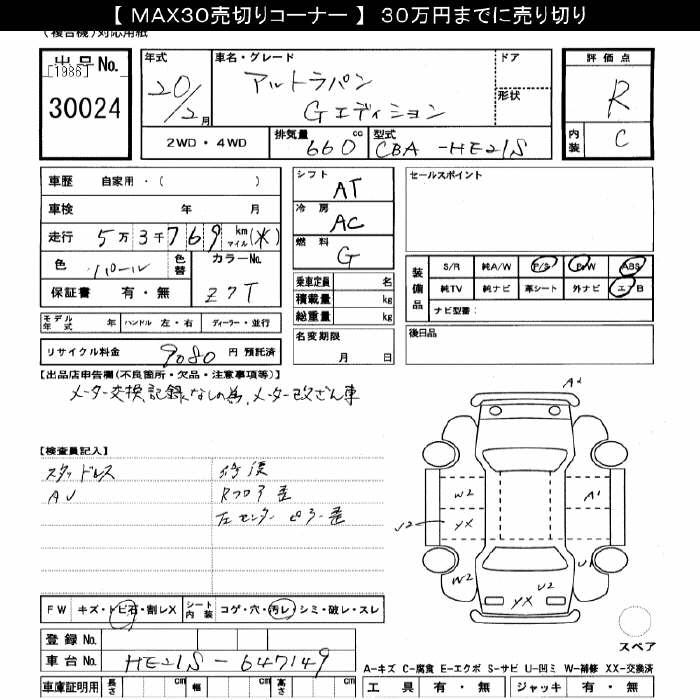 【 MAX30売切りコーナー 】 30万円までに売り切り
(複合機)対応用紙
出品No.
[1986]
30024
年式
20/2月
車名・グレード
アルトラパン
Gエディション
ドア
形状
2WD・4WD
排気量 660 cc
型式 CBA-HE21S
評価点
R
内装 C
車歴 自家用・( )
車検 年 月
走行 5万3千769 km マイル (※)
色 パール 色替
カラーNo.
Z7T
保証書 有・無
モデル年式 年 ハンドル 左・右 ディーラー・並行
リサイクル料金 9080 円 預託済
シフト AT
冷房 AC
燃料 G
乗車定員 名
積載量 kg
総重量 kg
名変期限
月 日
セールスポイント
装備品
S/R 純A/W P/S P/W ABS
純TV 純ナビ 革シート 外ナビ エアB
ナビ型番:
後日品
【出品店申告欄(不良箇所・欠品・注意事項等)】
メーター交換記録なしの為、メーター改ざん車
【検査員記入】
スタッドレス
AJ
修復
Rフロア歪
左センターピラー歪
A2
W2
YX
A1
W2
U1
U2
YX
FW キズ・トビ石・割レX シート内装 コゲ・穴・汚レ・シミ・破レ・スレ
登録No.
車台No. HE21S-647149
車庫証明用 長さ cm 幅 cm 高さ cm
スペア
A-キズ C-腐食 E-エクボ S-サビ U-凹ミ W-補修 XX-交換済
工具 有・無 ジャッキ 有・無